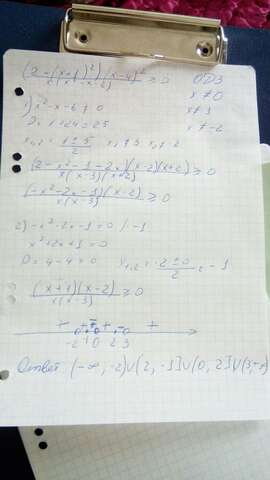 (2-(x+1)²)(x-4)² / x(x²-x-6) ≥ 0 ОДЗ
x ≠ 0
1) x²-x-6 ≠ 0 x ≠ 3
D = 1+24 = 25 x ≠ -2
x₁,₂ = 1±5 / 2 x₁ ≠ 3 x₂ ≠ -2
(2-x²-1-2x)(x-2)(x+2) / x(x-3)(x+2) ≥ 0
(-x²-2x-1)(x-2) / x(x-3) ≥ 0
2) -x²-2x-1 = 0 /·-1
x²+2x+1 = 0
D = 4-4 = 0 x₁,₂ = -2±0 / 2 = -1
(x+1)(x-2) / x(x-3) ≥ 0
-2 -1 0 2 3
Ответ (-∞, -2)∪(2, -1]∪(0, 2]∪(3,